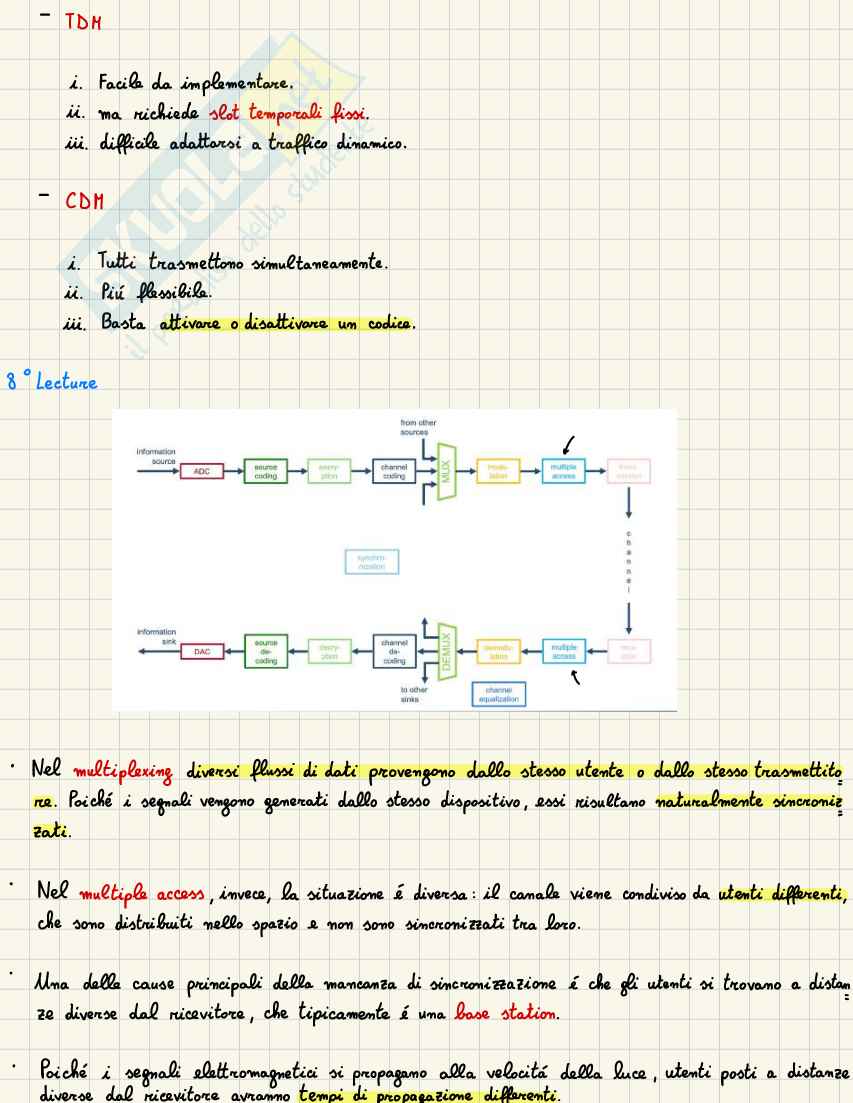 - TDM
i. Facile da implementare.
ii. ma richiede slot temporali fissi.
iii. difficile adattarsi a traffico dinamico.
- CDM
i. Tutti trasmettono simultaneamente.
ii. Piú flessibile.
iii. Basta attivare o disattivare un codice.
8° Lecture
from other
sources
information
source
ADC
source
coding
encry-
ption
channel
coding
MUX
modu-
lation
multiple
access
channel
synchro-
nization
information
sink
DAC
source
de-
coding
decry-
ption
channel
de-
coding
DEMUX
demodu-
lation
multiple
access
to other
sinks
channel
equalization
· Nel multiplexing diversi flussi di dati provengono dallo stesso utente o dallo stesso trasmettito
re. Poiché i segnali vengono generati dallo stesso dispositivo, essi risultano naturalmente sincroniz
zati.
· Nel multiple access, invece, la situazione é diversa: il canale viene condiviso da utenti differenti,
che sono distribuiti nello spazio e non sono sincronizzati tra loro.
· Una delle cause principali della mancanza di sincronizzazione é che gli utenti si trovano a distan
ze diverse dal ricevitore, che tipicamente é una base station.
· Poiché i segnali elettromagnetici si propagano alla velocitá della luce, utenti posti a distanze
diverse dal ricevitore avranno tempi di propagazione differenti.